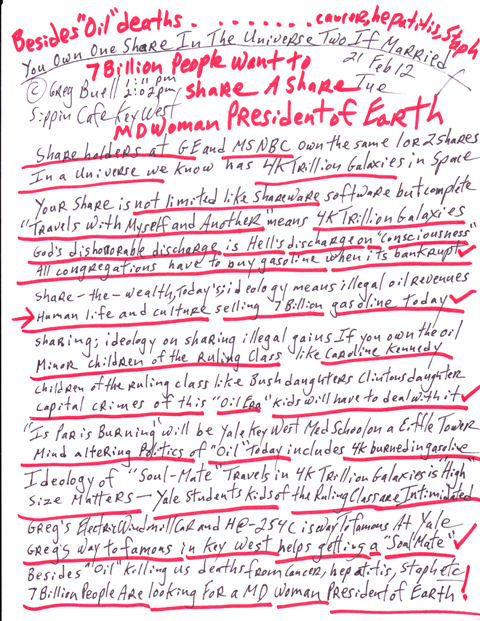 Besides "Oil" deaths........cancer, hepatitis, Staph
You Own One Share In The Universe Two If Married
7 Billion People Want to
21 Feb 12
© Greg Buell 1:11pm
share A Share
Tue
1:02pm
Sippin Cafe Key West
MD Woman President of Earth
Share holders at GE and MSNBC own the same 1 or 2 shares
In a Universe we know has 4K Trillion Galaxies in Space
Your Share is not limited like Shareware software but complete
"Travels With Myself and Another" means 4K Trillion Galaxies
God's dishonorable discharge is Hell's discharge on "Consciousness"
All congregations have to buy gasoline when its bankrupt
Share-the-wealth, Today's; ideology means illegal oil revenues
Human life and culture selling 7 Billion gasoline today
sharing; ideology on sharing illegal gains If you own the oil
Minor children of the Ruling Class like Caroline Kennedy
children of the ruling class like Bush daughters Clintons daughter
Capital crimes of this "Oil Era" kids will have to deal with it
"Is Paris Burning" will be Yale Key West Med School on a Eiffle Tower
Mind altering Politics of "Oil" Today includes 4K burned in gasoline
Ideology of "Soul-Mate" Travels in 4K Trillion Galaxies is "High"
Size Matters - Yale Students Kids of the Ruling Class are Intimidated
Greg's Electric Windmill Car and H@-254C is way To famous At Yale
Greg's way to famous in Key West helps getting a "Soul Mate"
Besides "Oil" killing us deaths from Cancer, hepatitis, Staph etc
7 Billion People Are looking For a MD Woman President of Earth!